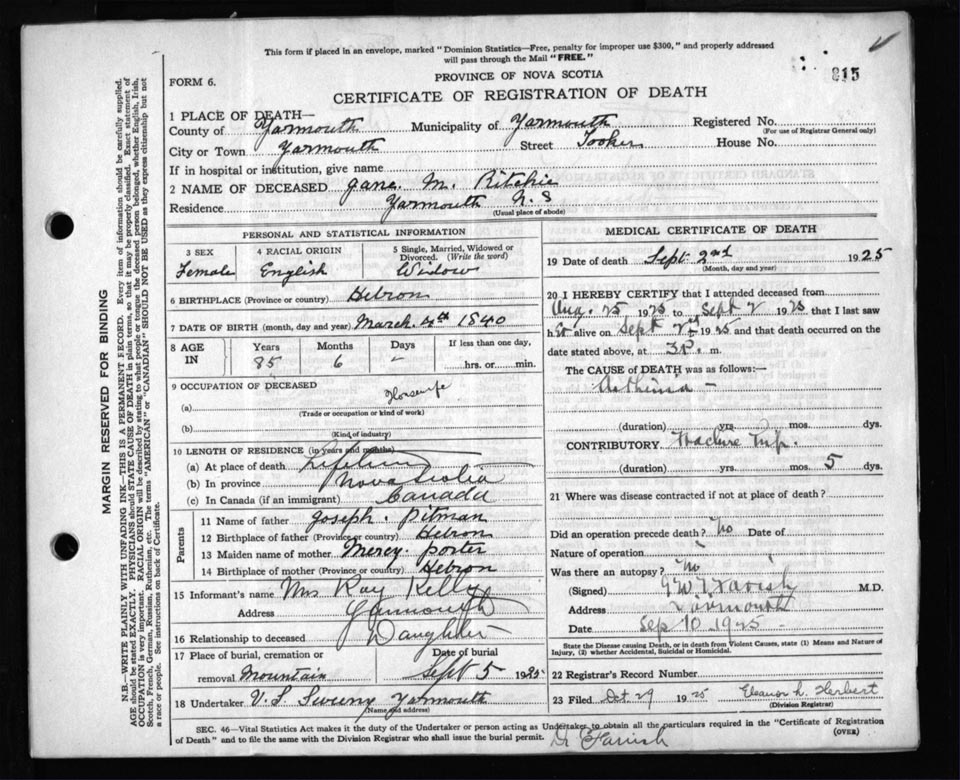 This form if placed in an envelope, marked "Dominion Statistics—Free, penalty for improper use $300," and properly addressed
will pass through the Mail "FREE."
FORM 6.
PROVINCE OF NOVA SCOTIA
815
CERTIFICATE OF REGISTRATION OF DEATH
1 PLACE OF DEATH—
County of Yarmouth Municipality of Yarmouth Registered No.
(For use of Registrar General only)
City or Town Yarmouth Street Tooker House No.
If in hospital or institution, give name
2 NAME OF DECEASED Jane. M. Ritchie
Residence Yarmouth N. S
(Usual place of abode)
PERSONAL AND STATISTICAL INFORMATION
3 SEX 4 RACIAL ORIGIN 5 Single, Married, Widowed or Divorced. (Write the word)
Female English Widow
6 BIRTHPLACE (Province or country) Hebron
7 DATE OF BIRTH (month, day and year) March. 4th 1840
8 AGE IN Years Months Days If less than one day,
85 6 – hrs. or min.
9 OCCUPATION OF DECEASED
(a) Housewife
(Trade or occupation or kind of work)
(b)
(Kind of industry)
10 LENGTH OF RESIDENCE (in years and months)
(a) At place of death Lifetime
(b) In province Nova Scotia
(c) In Canada (if an immigrant) Canada
Parents
11 Name of father Joseph. Pitman
12 Birthplace of father (Province or country) Hebron
13 Maiden name of mother Mercy. Porter
14 Birthplace of mother (Province or country) Hebron
15 Informant's name Mrs Ray Kelly
Address Yarmouth
16 Relationship to deceased Daughter
17 Place of burial, cremation or removal Mountain Date of burial Sept 5 1925
18 Undertaker V. S. Sweeny Yarmouth
(Name and address)
MEDICAL CERTIFICATE OF DEATH
19 Date of death Sept. 2nd 1925
(Month, day and year)
20 I HEREBY CERTIFY that I attended deceased from
Aug. 25 1925 to Sept 2 1925 that I last saw
h er alive on Sept 2nd 1925 and that death occurred on the
date stated above, at 3P. m.
The CAUSE of DEATH was as follows:—
Asthenia –
(duration) yrs. mos. dys.
CONTRIBUTORY Fracture hip.
(duration) yrs. mos. 5 dys.
21 Where was disease contracted if not at place of death?
Did an operation precede death? No Date of
Nature of operation
Was there an autopsy? No
(Signed) G W T Farish M.D.
Address Yarmouth
Date Sep 10 1925 –
State the Disease causing Death, or in death from Violent Causes, state (1) Means and Nature of
Injury, (2) whether Accidental, Suicidal or Homicidal.
22 Registrar's Record Number
23 Filed Oct 29 1925 Eleanor L. Herbert
(Division Registrar)
SEC. 46—Vital Statistics Act makes it the duty of the Undertaker or person acting as Undertaker to obtain all the particulars required in the "Certificate of Registration
of Death" and to file the same with the Division Registrar who shall issue the burial permit. Dr Farish
(OVER)
MARGIN RESERVED FOR BINDING
N.B.—WRITE PLAINLY WITH UNFADING INK—THIS IS A PERMANENT RECORD. Every item of information should be carefully supplied.
AGE should be stated EXACTLY. PHYSICIANS should STATE CAUSE OF DEATH in plain terms, so that it may be properly classified. Exact statement of
OCCUPATION is very important. RACIAL ORIGIN will be described by stating to what people or tongue the deceased person belonged, whether English, Irish,
Scotch, French, German, Russian, Ruthenian, etc. The terms "AMERICAN" or "CANADIAN" SHOULD NOT BE USED as they express citizenship but not
a race or people. See instructions on back of Certificate.